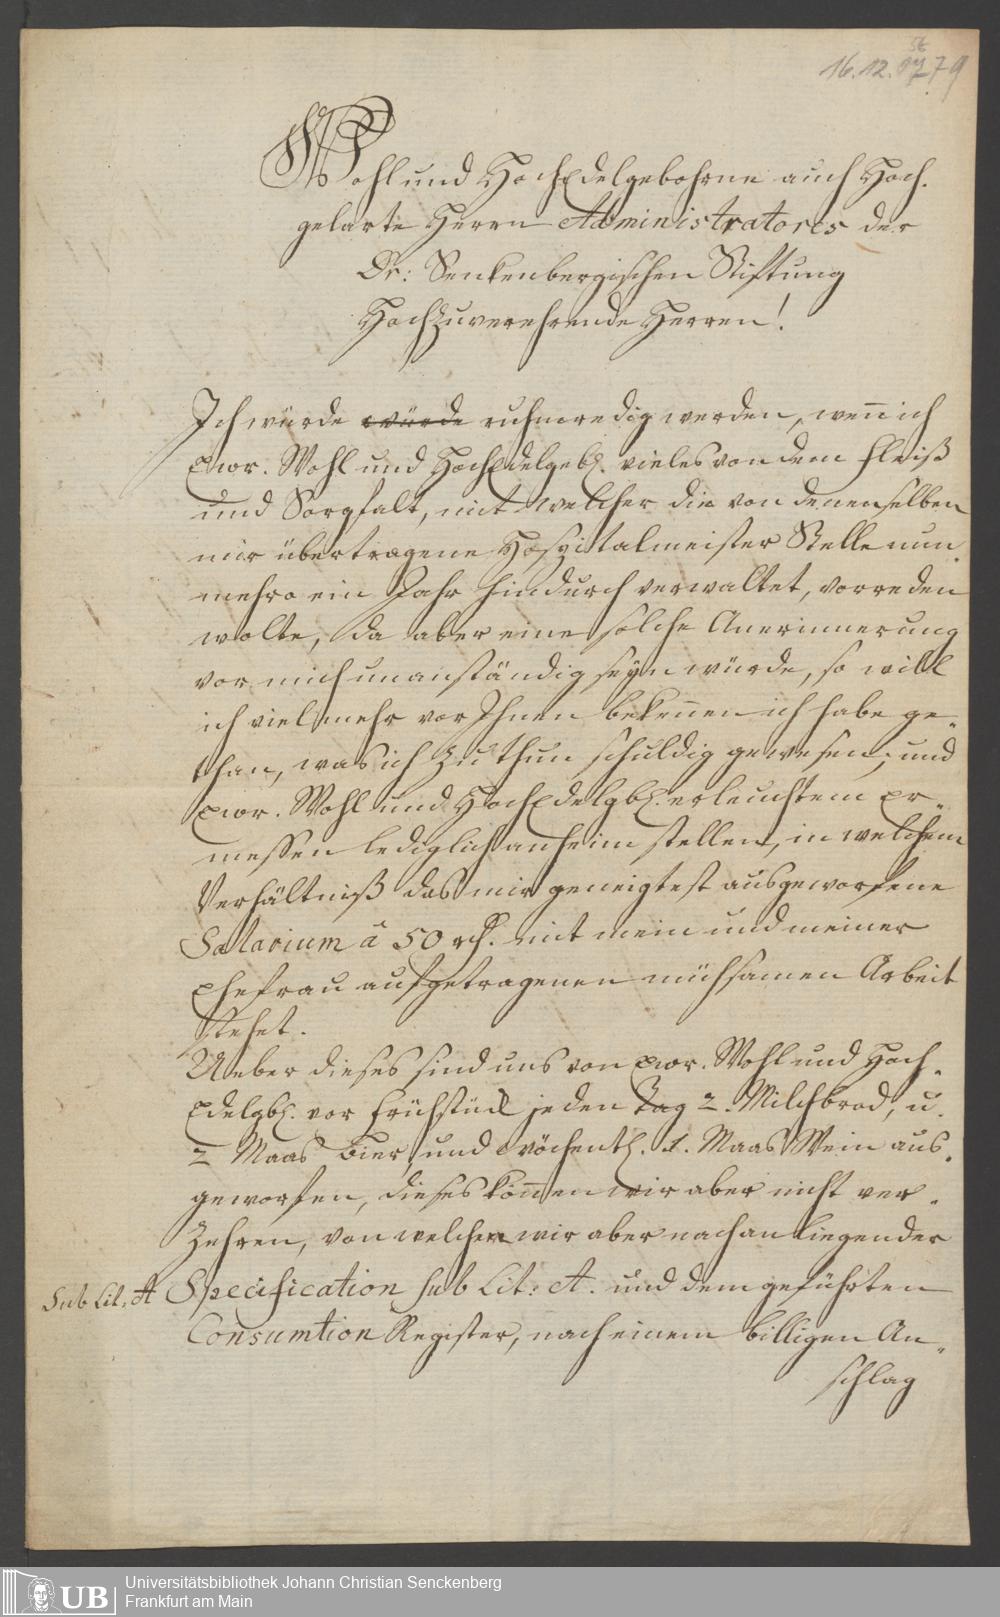 16.12.1779
Wohl und HochEdelgebohrne auch Hoch-
gelarte Herrn Administratores der
Dr: Senkenbergischen Stiftung
Hochzuverehrende Herren!
Ich würde würde ruhmredig werden, wen̄ ich
Ewr. Wohl und HochEdelgeb. vieles von dem Fleiß
und Sorgfalt, mit welcher die von denenselben
mir übertragene Hospitalmeister Stelle nun-
mehro ein Jahr hindurch verwaltet, vorreden
wolte, da aber eine solche Anerinnerung
vor mich unanständig seyn würde, so will
ich vielmehr vor Ihnen beken̄en ich habe ge-
than, was ich zu thun schuldig gewesen, und
Ewr. Wohl und HochEdelgb. erleuchtem Er-
messen lediglich anheim stellen, in welchem
Verhältniß das mir geneigtest ausgeworfene
Salarium â 50 rth. mit mein und meiner
Ehefrau aufgetragenen mühsamen Arbeit
stehet.
Ueber dieses sind uns von Ewr. Wohl und Hoch-
Edelgb. vor Frühstück jeden Tag 2. Milchbrod, u.
2 Maas Bier und wöchentl. 1. Maas Wein aus-
geworfen, dieses kön̄en wir aber nicht ver-
zehren, von welchen wir aber nach anliegender
Sub Lit: A Specification sub Lit: A. und dem geführten
Consumtion Register, nach einem billigen An-
schlag
UB
Universitätsbibliothek Johann Christian Senckenberg
Frankfurt am Main